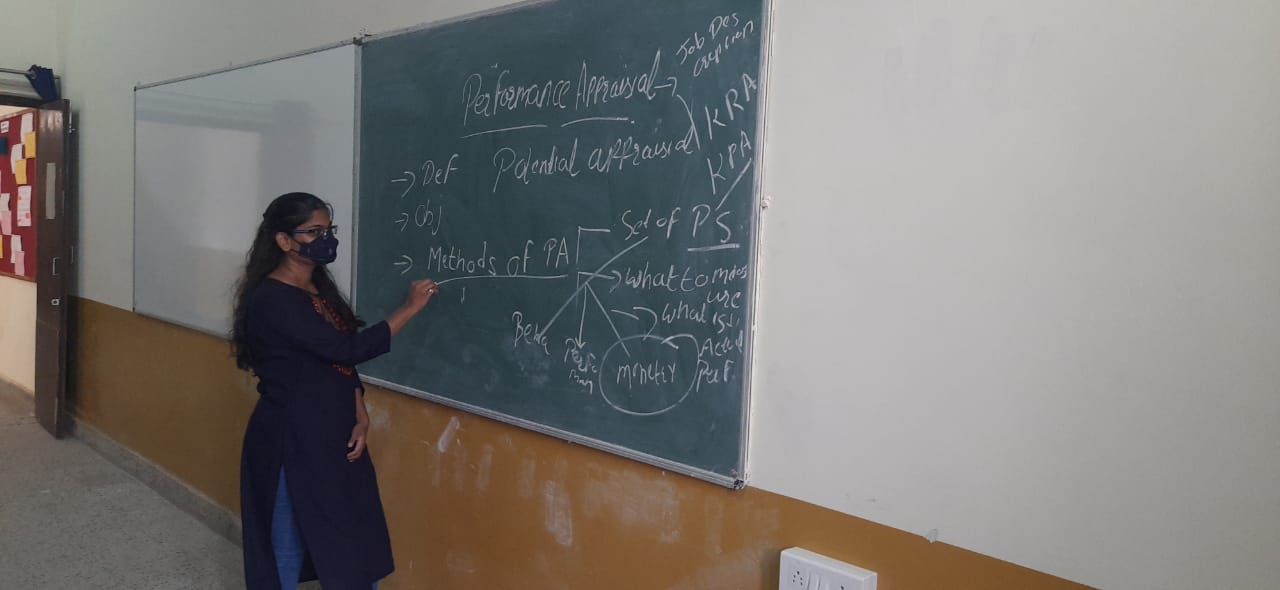 Performance Appraisal → Job Des
cription
KRA
Potential appraisal
KPA
→ Def
→ Obj
→ Methods of PA
Set of PS
→ What to meas
ure
→ What is
Actual
Perf.
Beha
monetary